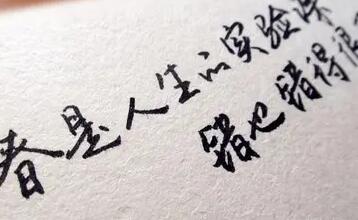 春是人生的实验课
错也错得很